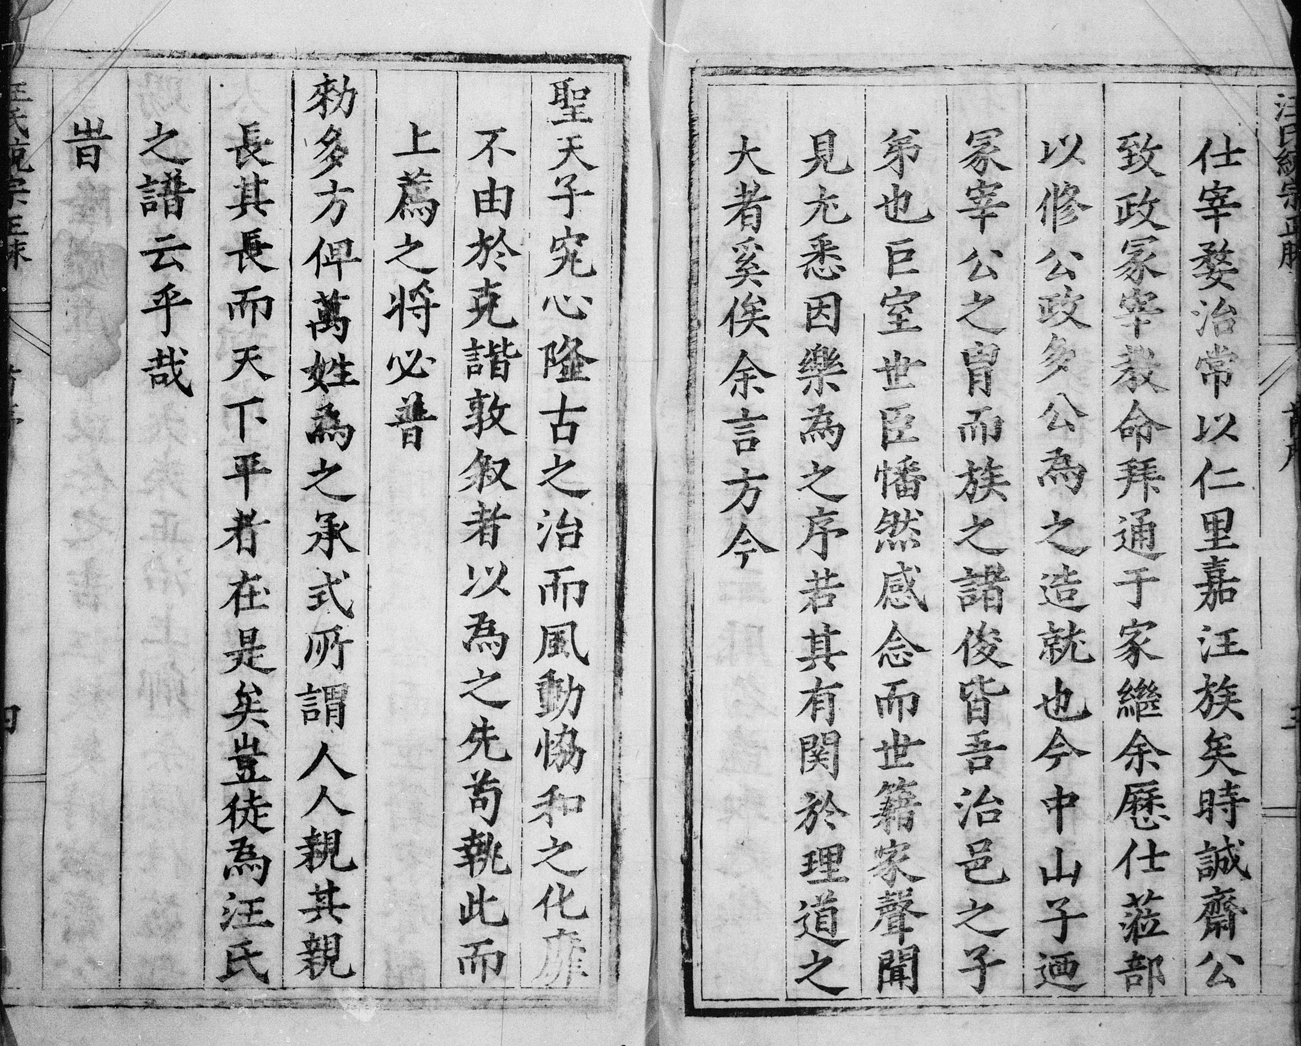 汪氏統宗正脉
仕宰婺治常以仁里嘉汪族矣時誠齋公
致政冢宰教命拜通于家繼余歷仕蒞部
以修公政多公為之造就也今中山子迺
冢宰公之胄而族之諸俊皆吾治邑之子
弟也巨室世臣幡然感念而世籍家聲聞
見尤悉因樂為之序若其有関於理道之
大者奚俟余言方今
聖天子究心隆古之治而風動恊和之化靡
不由於克諧敦叙者以為之先茍執此而
上薦之将必普
勑多方俾萬姓為之承式所謂人人親其親
長其長而天下平者在是矣豈徒為汪氏
之譜云乎哉
旹
汪氏統宗正脉
四